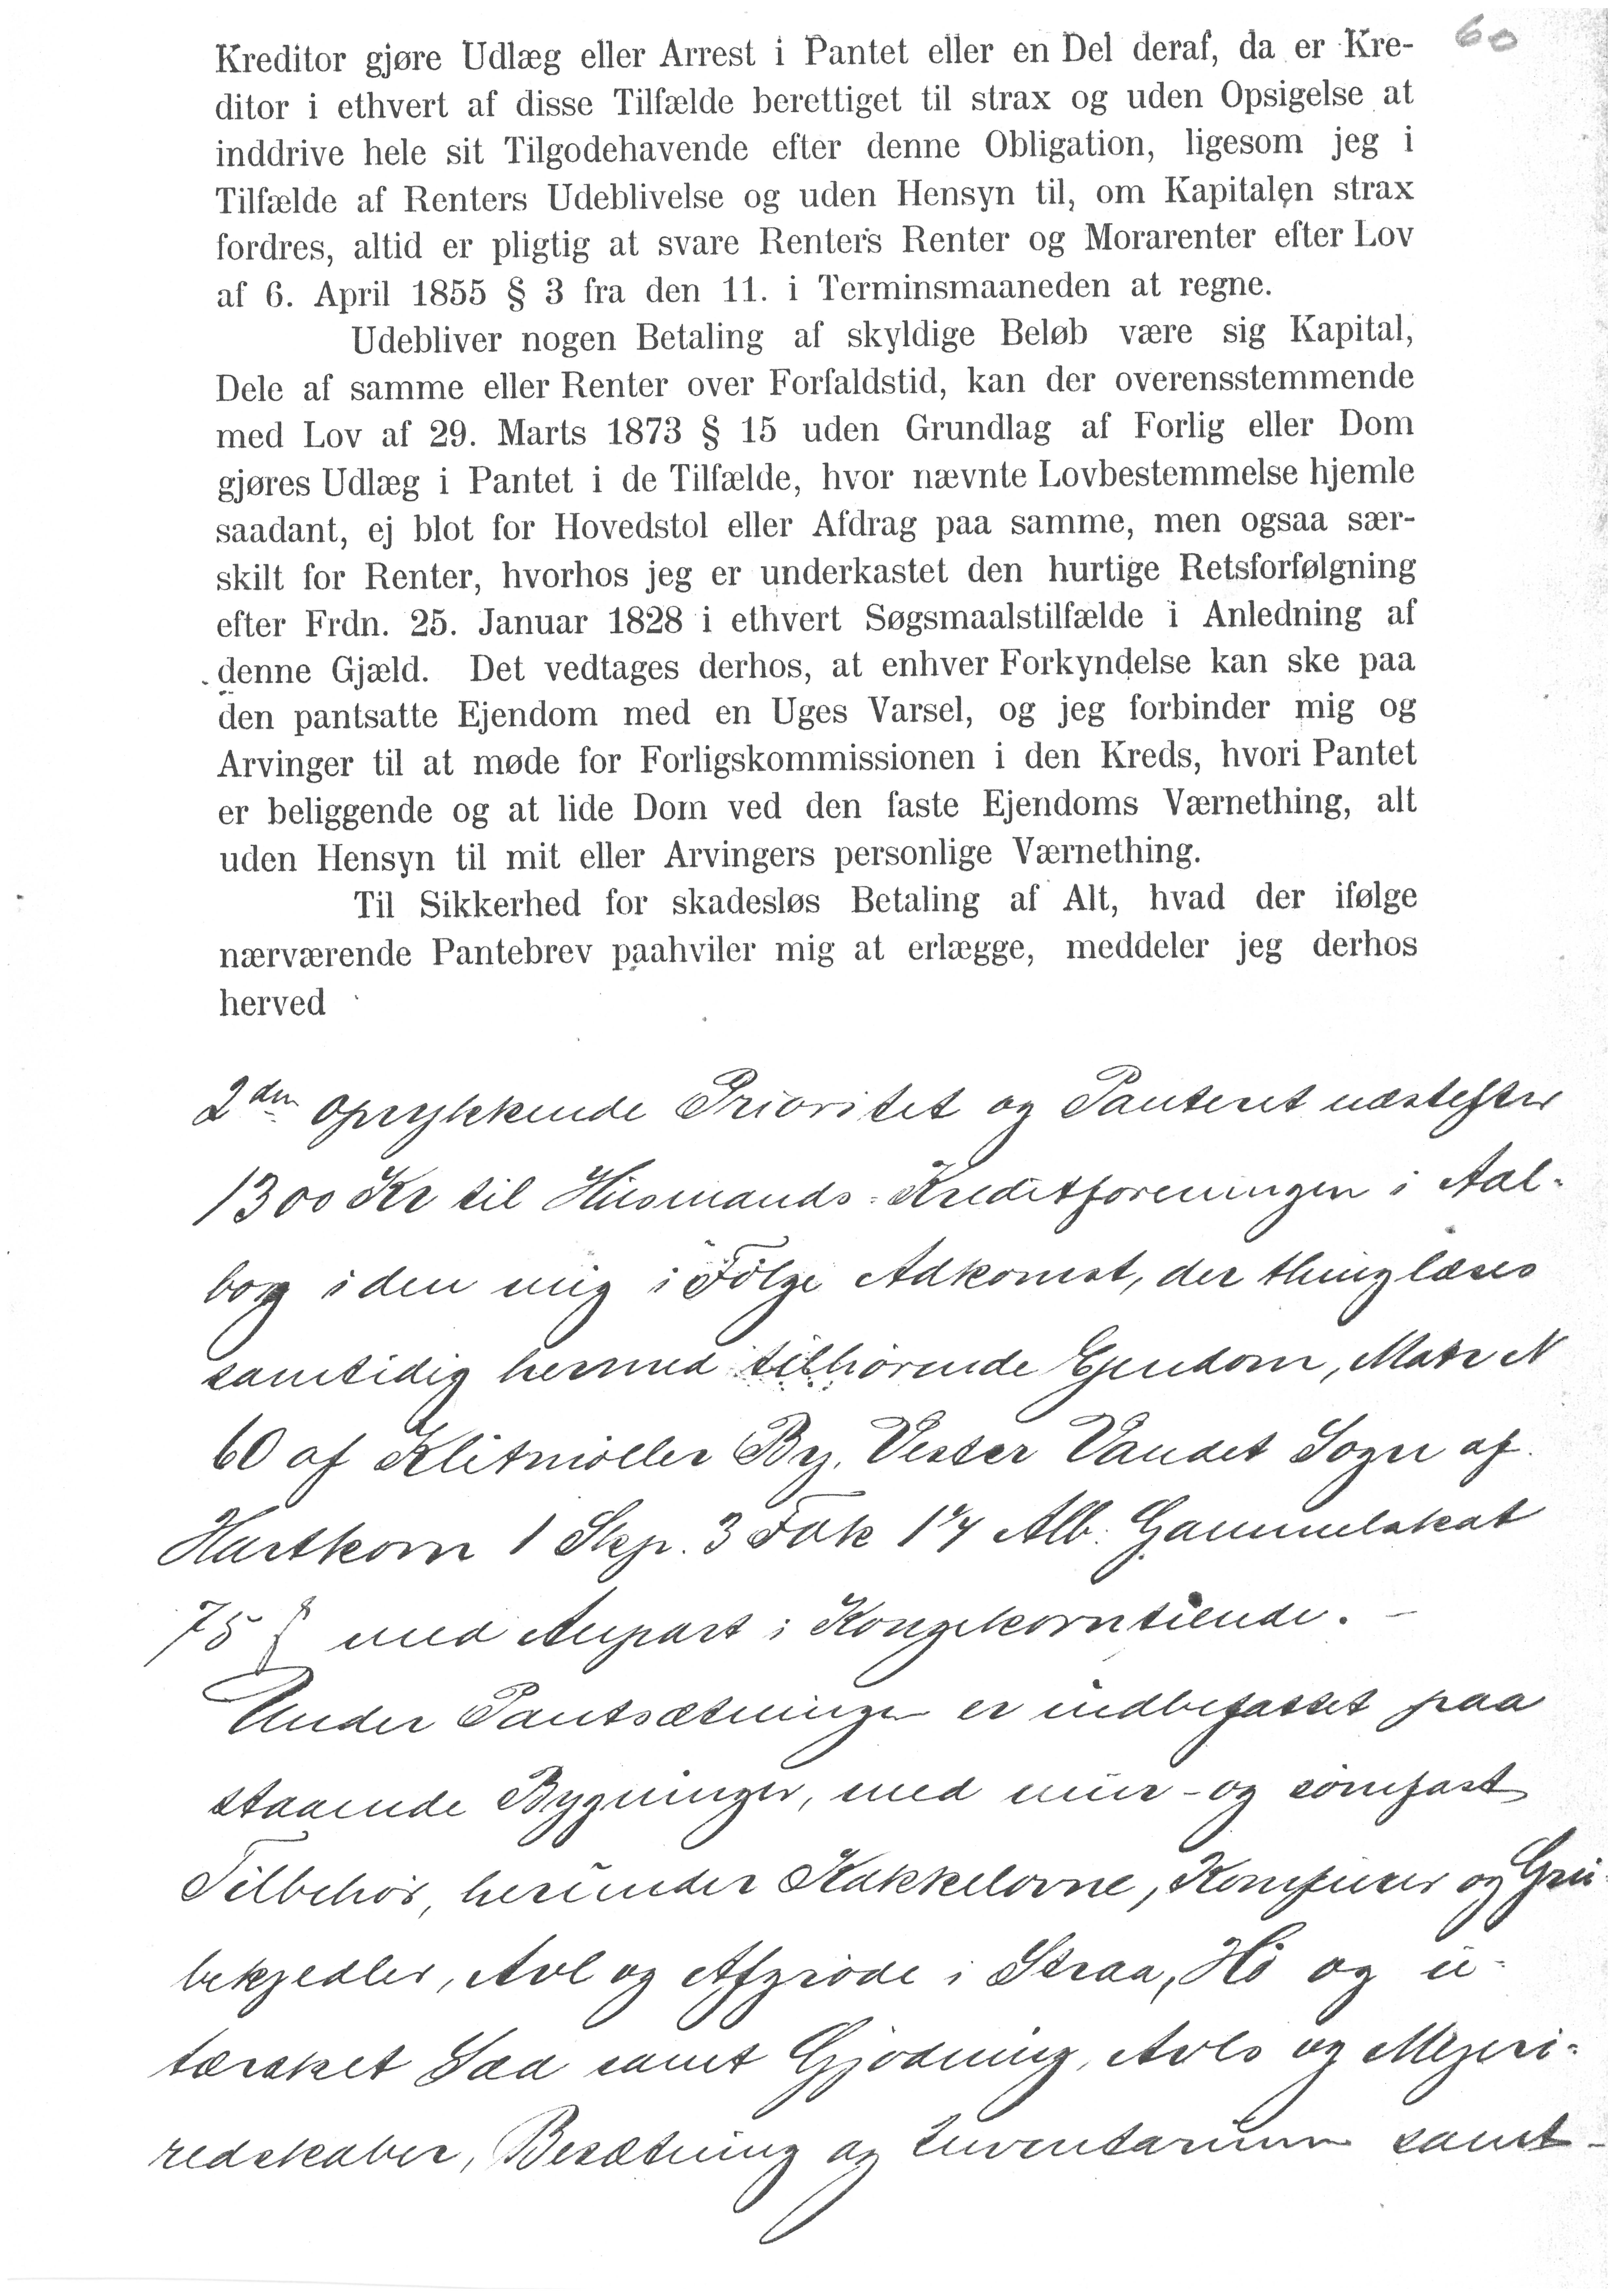 60
Kreditor gjøre Udlæg eller Arrest i Pantet eller en Del deraf, da er Kre-
ditor i ethvert af disse Tilfælde berettiget til strax og uden Opsigelse at
inddrive hele sit Tilgodehavende efter denne Obligation, ligesom jeg i
Tilfælde af Renters Udeblivelse og uden Hensyn til, om Kapitalen strax
fordres, altid er pligtig at svare Renters Renter og Morarenter efter Lov
af 6. April 1855 § 3 fra den 11. i Terminsmaaneden at regne.
Udebliver nogen Betaling af skyldige Beløb være sig Kapital,
Dele af samme eller Renter over Forfaldstid, kan der overensstemmende
med Lov af 29. Marts 1873 § 15 uden Grundlag af Forlig eller Dom
gjøres Udlæg i Pantet i de Tilfælde, hvor nævnte Lovbestemmelse hjemle
saadant, ej blot for Hovedstol eller Afdrag paa samme, men ogsaa sær-
skilt for Renter, hvorhos jeg er underkastet den hurtige Retsforfølgning
efter Frdn. 25. Januar 1828 i ethvert Søgsmaalstilfælde i Anledning af
denne Gjæld. Det vedtages derhos, at enhver Forkyndelse kan ske paa
den pantsatte Ejendom med en Uges Varsel, og jeg forbinder mig og
Arvinger til at møde for Forligskommissionen i den Kreds, hvori Pantet
er beliggende og at lide Dom ved den faste Ejendoms Værnething, alt
uden Hensyn til mit eller Arvingers personlige Værnething.
Til Sikkerhed for skadesløs Betaling af Alt, hvad der ifølge
nærværende Pantebrev paahviler mig at erlægge, meddeler jeg derhos
herved
2den oprykkende Prioritet og Panteret næstefter
1300 Kr til Husmands-Kreditforeningen i Aal-
borg i den mig i Følge Adkomst, der thinglæses
samtidig hermed tilhørende Ejendom, Matr N
60 af Klitmøller By, Vester Vandet Sogn af
Hartkorn 1 Skp. 3 Fdk 1¾ Alb. Gammelskat
75 § med Anpart i Kongekorntiende. -
Under Pantsætningen er indbefattet paa
staaende Bygninger, med mur- og sømfast
Tilbehør, herunder Kakkelovne, Komfurer og Gru-
bekjedler, Avl og Afgrøde i Straa, Hø og u-
tærsket Sæd samt Gjødning, Avls og Mejeri-
redskaber, Besætning og Inventarium samt-